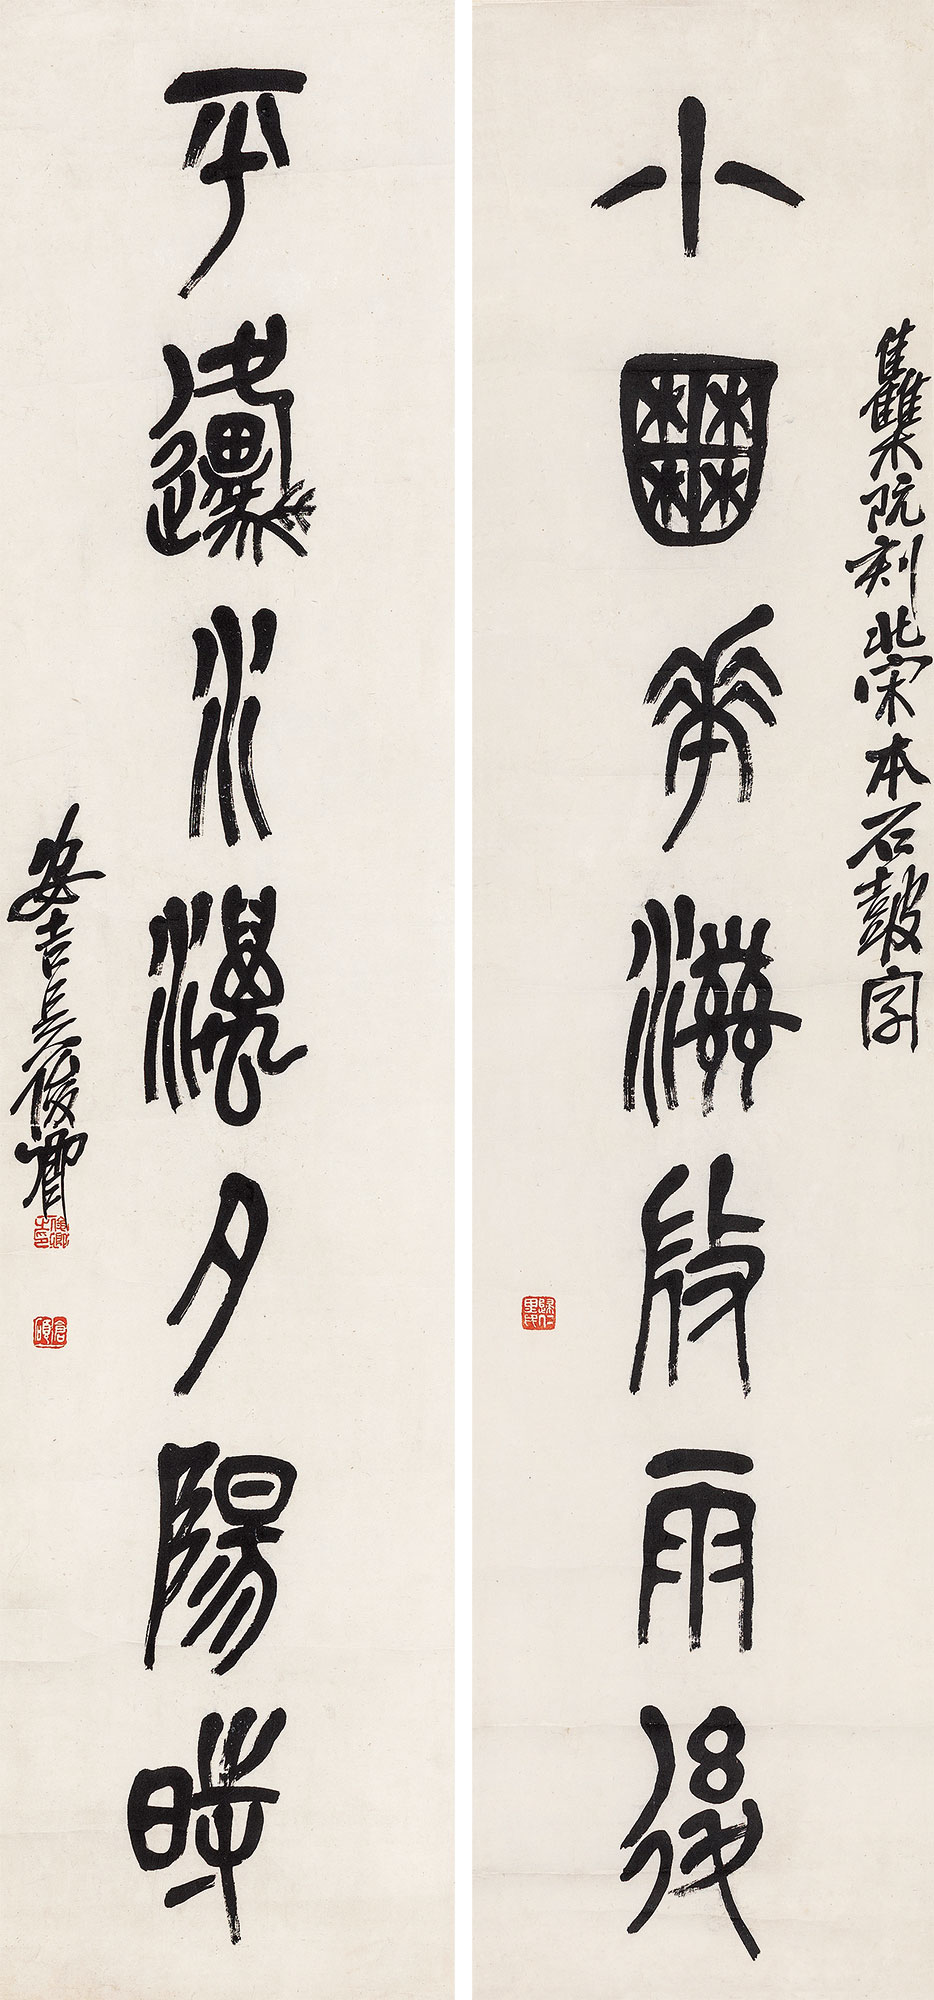 集阮刻北宋本石鼓字
小囿華滋雨後
歸仁里民
平邍水濕夕陽時
安吉吳俊卿
俊卿之印
倉碩